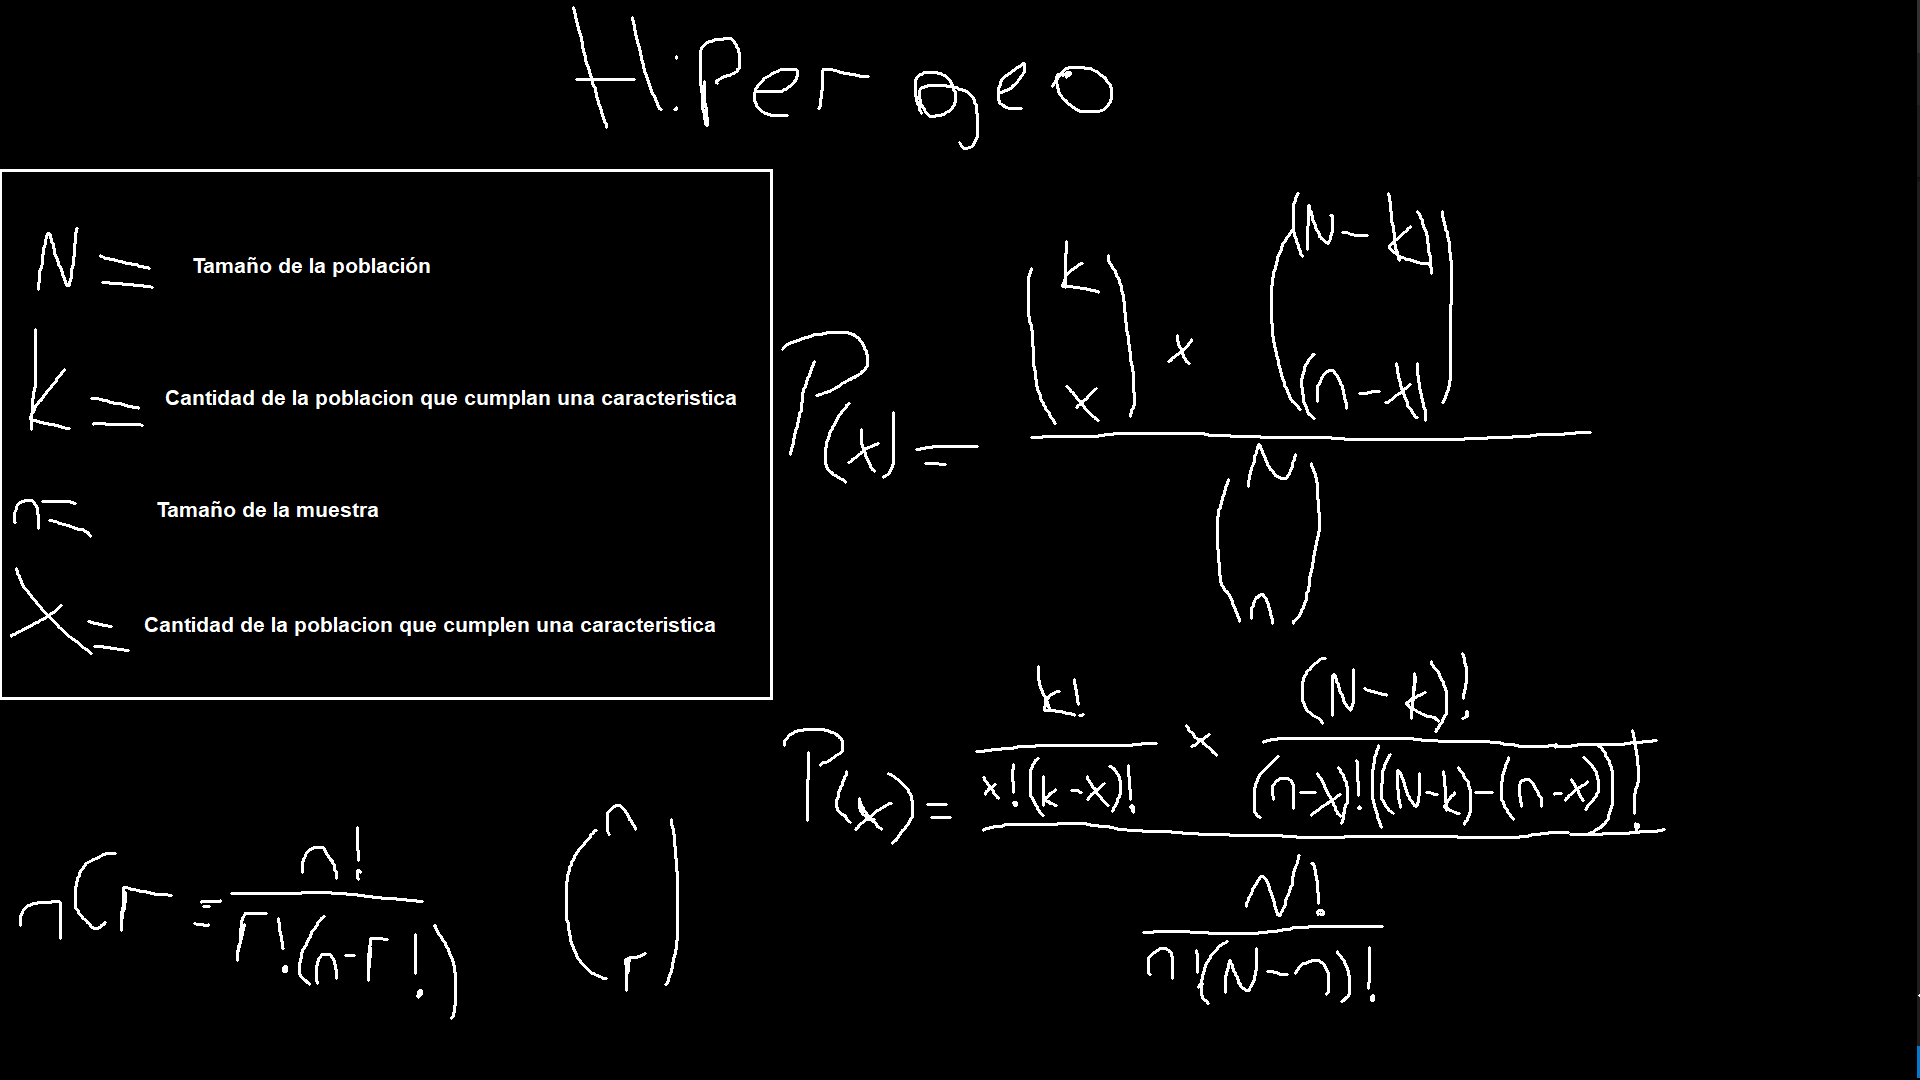 Hiper geo
N = Tamaño de la población
k = Cantidad de la poblacion que cumplan una caracteristica
n = Tamaño de la muestra
X = Cantidad de la poblacion que cumplen una caracteristica
P(x) =
(k x) x ((N-k) (n-x))
(N n)
P(x) =
k! x (N-k)!
x!(k-x)! (n-x)!((N-k)-(n-x))!
N!
n!(N-n)!
nCr = n!
r!(n-r!)
(n r)